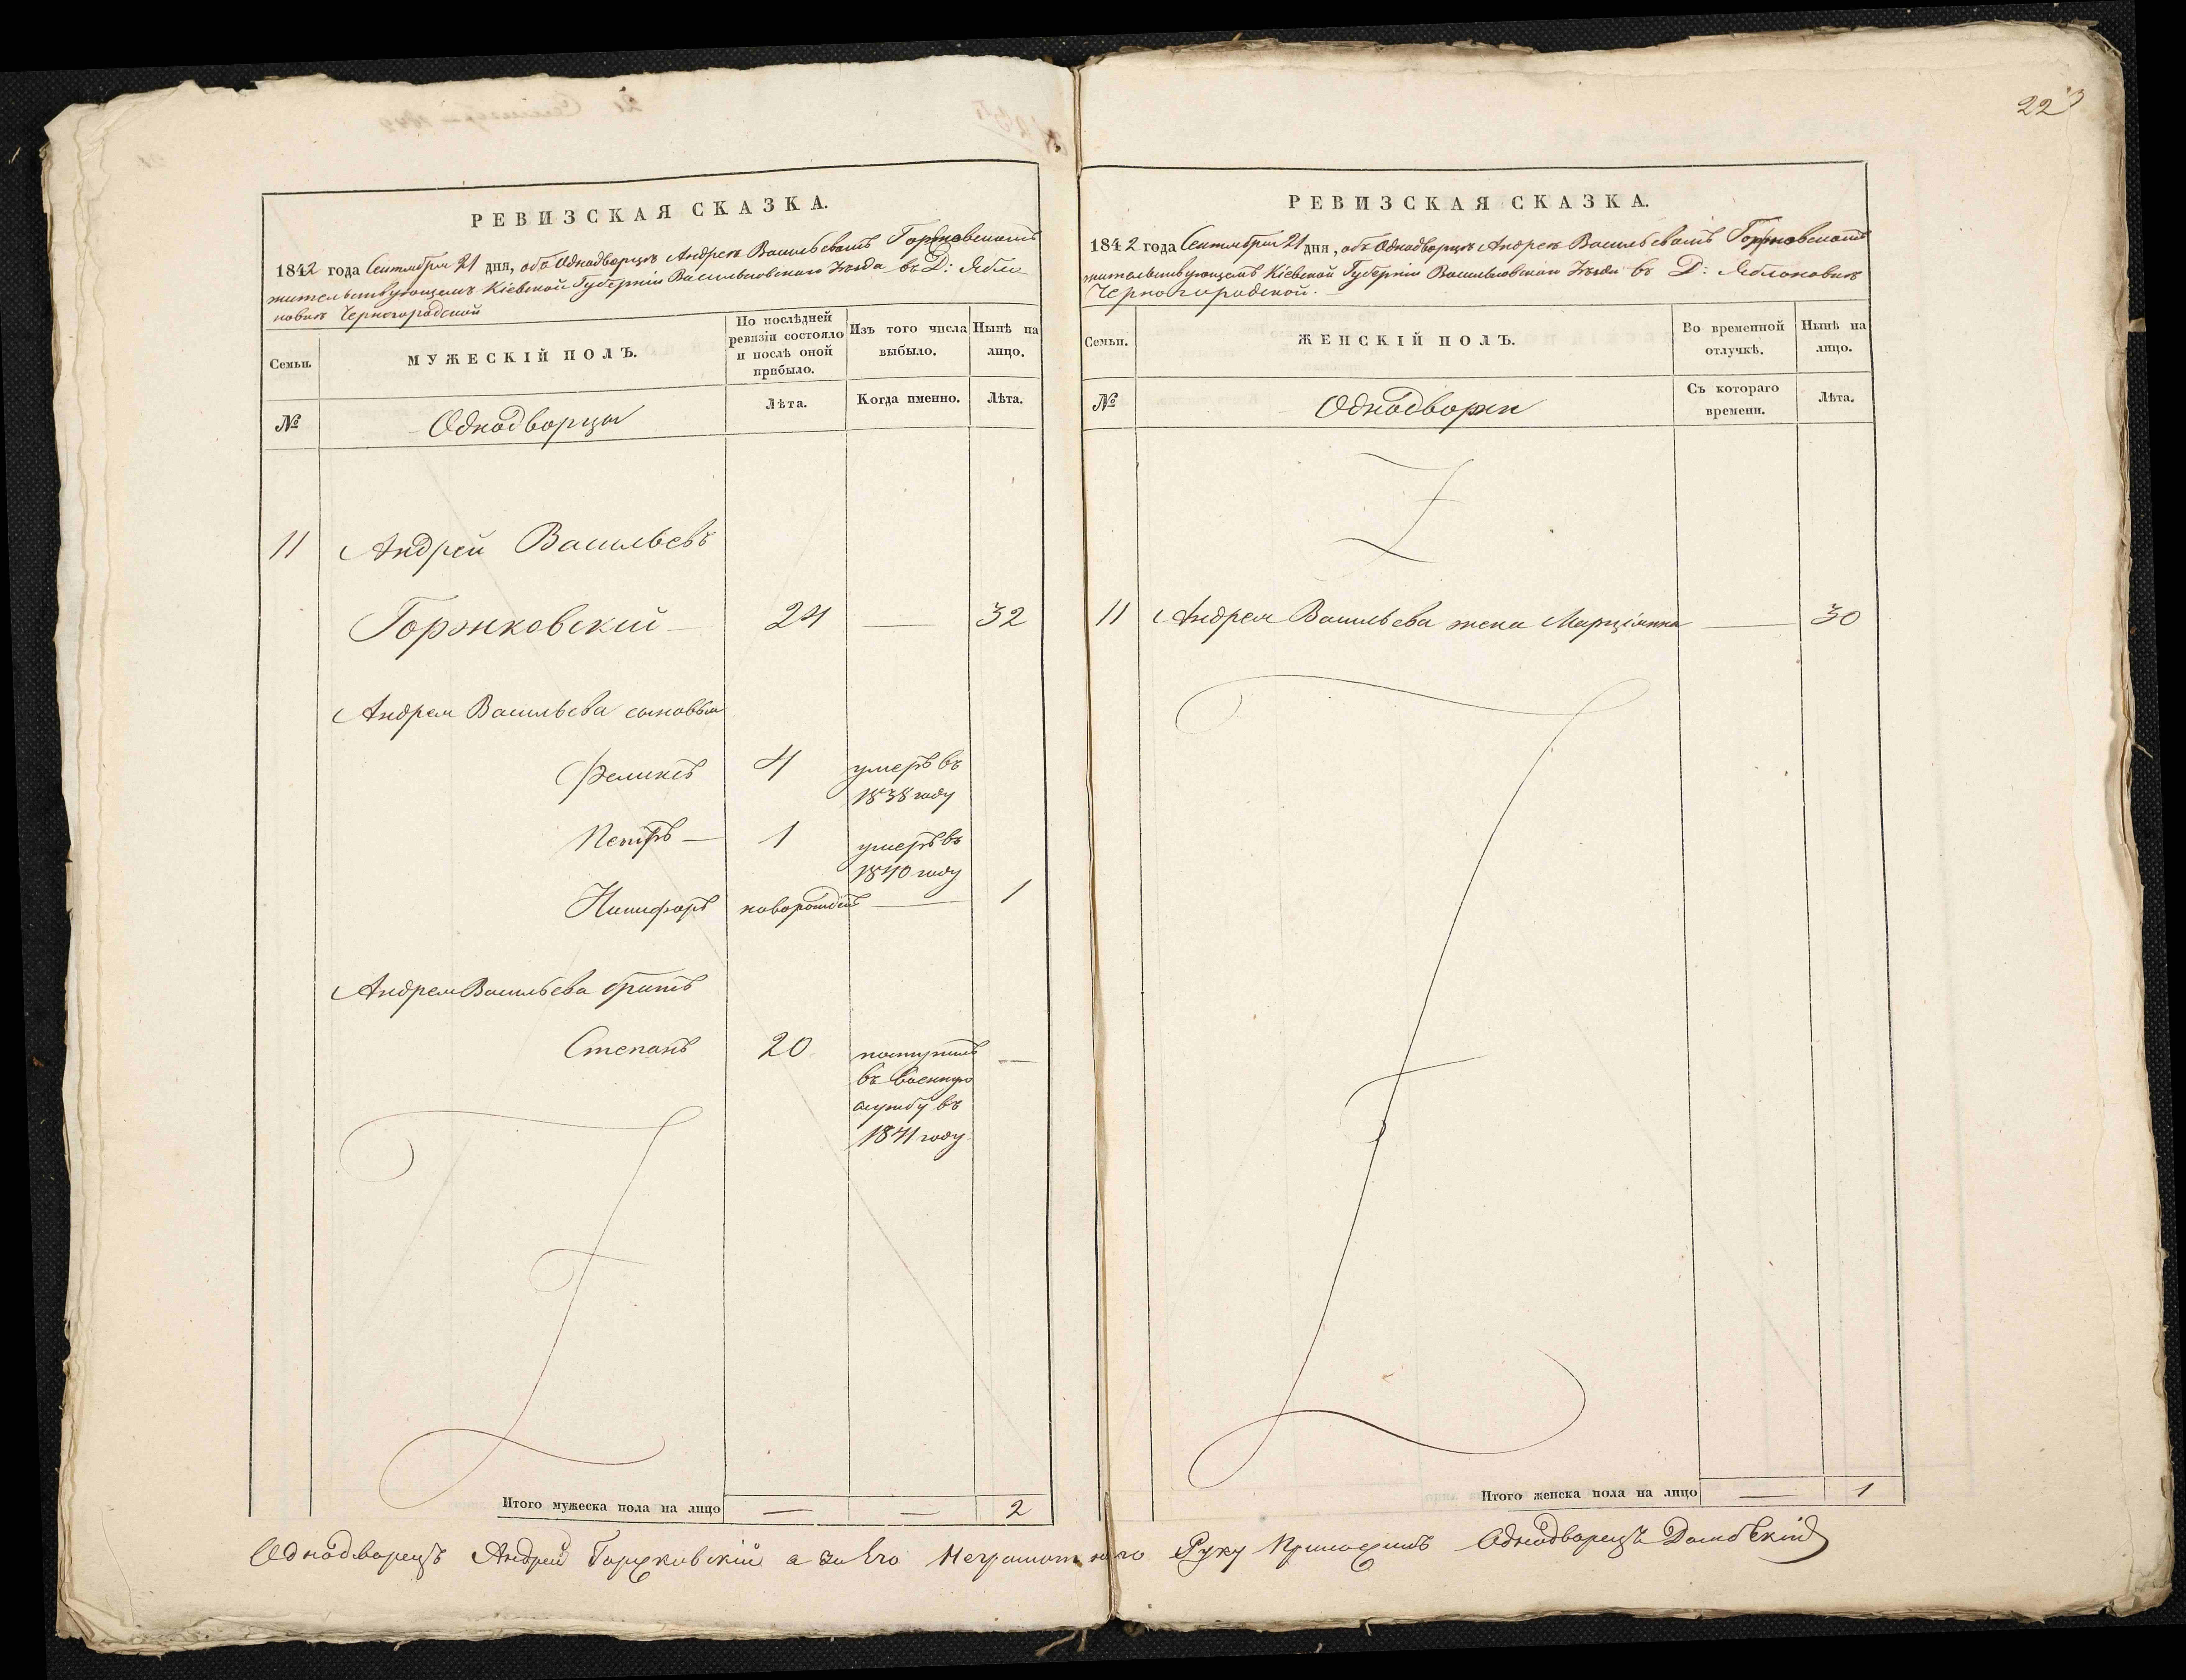 22
РЕВИЗСКАЯ СКАЗКА.
1842 года Сентября 21 дня, объ Однодворцѣ Андреѣ Васильевомъ
жительствующемъ Кіевской Губерніи Васильковскаго Уѣзда въ Д: Ябло-
новкѣ Черногородской
Семьи.
МУЖЕСКІЙ ПОЛЪ.
По послѣдней ревизіи состояло и послѣ оной прибыло.
Изъ того числа выбыло.
Нынѣ на лицо.
№
Однодворцы
Лѣта.
Когда именно.
Лѣта.
11 Андрей Васильевъ
Горжковскій — 24 — 32
Андрея Васильева сыновья
Феликсъ 4 умеръ въ
1838 году
Петръ — 1 умеръ въ
1840 году
Никифоръ новорожден — 1
Андрея Васильева братъ
Степанъ 20 поступилъ —
въ военную
службу въ
1841 году
Итого мужеска пола на лицо — — 2
РЕВИЗСКАЯ СКАЗКА.
1842 года Сентября 21 дня, объ Однодворцѣ Андреѣ Васильевомъ
жительствующемъ Кіевской Губерніи Васильковскаго Уѣзда въ Д: Яблоновкѣ
Черногородской.
Семьи.
ЖЕНСКІЙ ПОЛЪ.
Во временной отлучкѣ.
Нынѣ на лицо.
№
Однодворки
Съ котораго времени.
Лѣта.
11 Андрея Васильева жена Марціанна — 30
Итого женска пола на лицо — 1
Однодворецъ Андрей Горжковскій а за Его Неграмотнаго Руку Приложилъ Однодворецъ